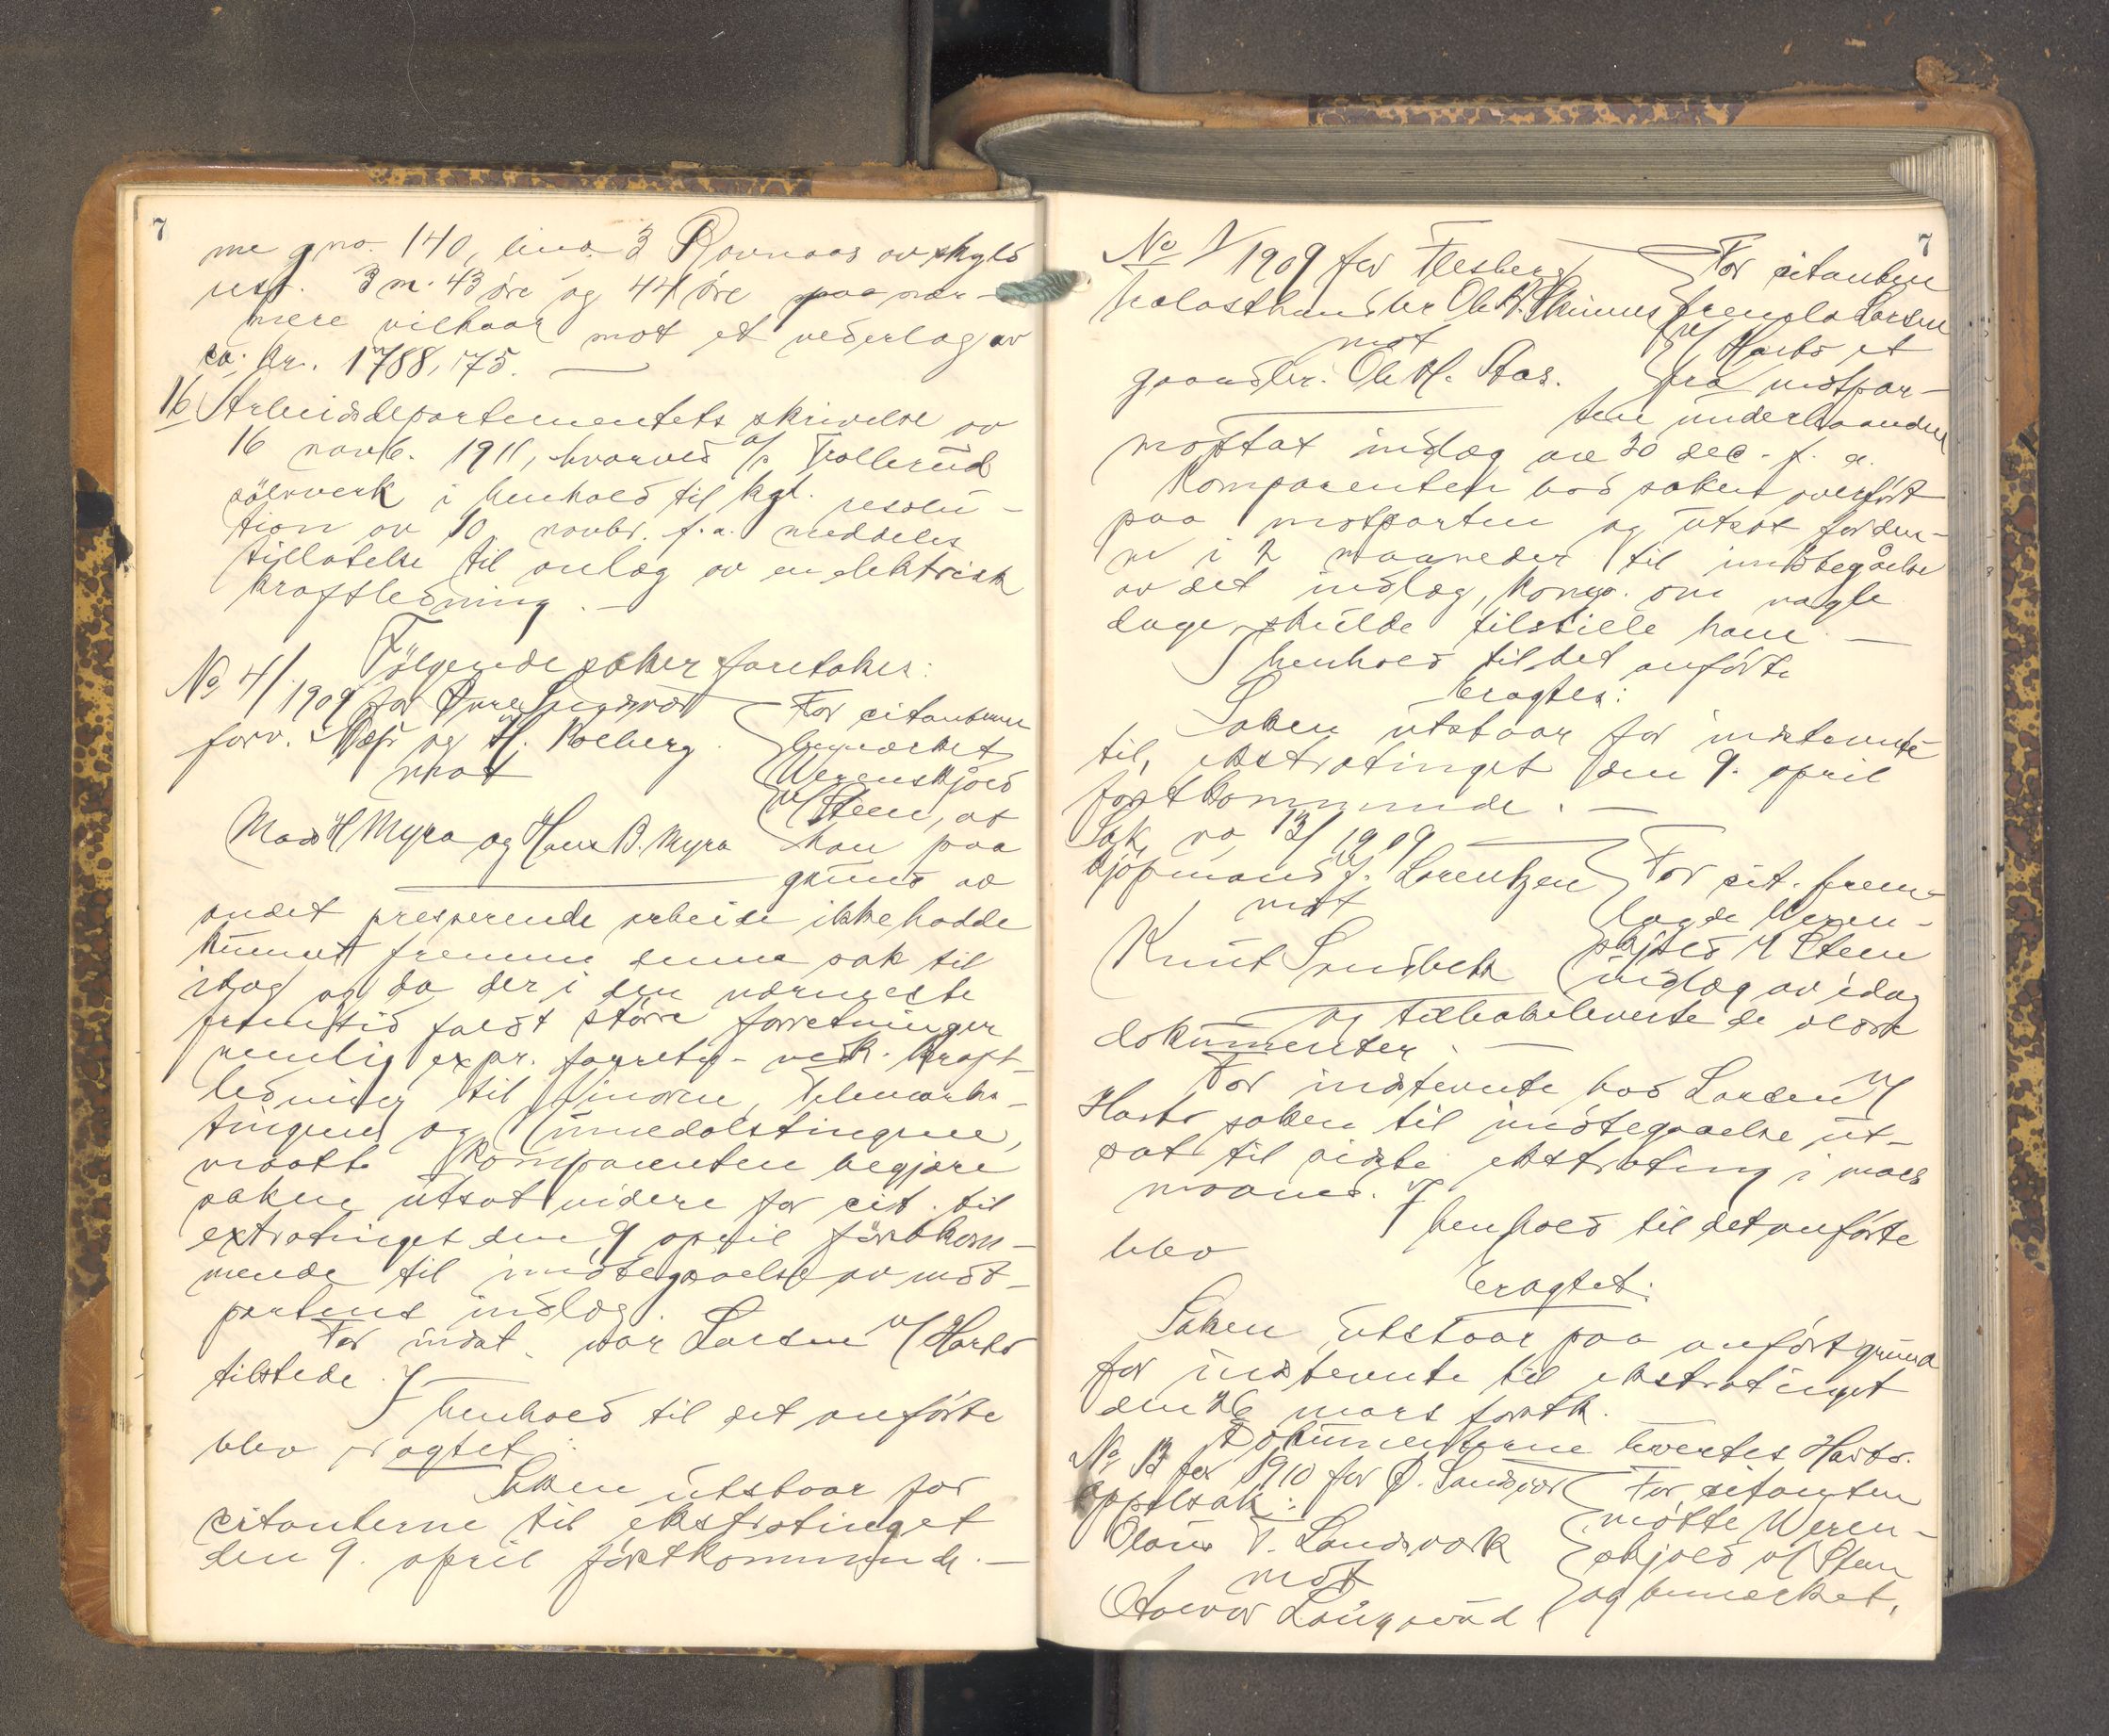 7
me gno. 140, bno. 3 Ravnaas av skyld
resp. 3 m. 43 øre og 44 øre paa nær-
mere vilkaar mot et vederlag av
ca. kr. 1788,75.
16 Arbeidsdepartementets skrivelse av
16 novb. 1911, hvorved a/s Trollerud
sölvverk i henhold til kgl. resolu-
tion av 10 novbr. f.a. meddeles
tillatelse til anlæg av en elektrisk
kraftledning.
Fölgende saker foretokes:
No 4/1909 for Øvre Sandsvær
forv. og H. Kolberg
mot
Mads H Myra og Hans B. Myra
For citanterne
bemerket
Werenskjold
v/ Steen, at
han paa
grund av
andet presserende arbeide ikke hadde
kunnet fremme denne sak til
idag og da der i den nærmeste
fremtid faldt större forretninger
nemlig expr. forretn. - vedk. kraft-
ledning til Tinoren, Telemarks-
tingene og Numedalstingene,
maatte komparenten begjære
saken utsat videre for cit. til
extratinget den 9 april förstkom-
mende til imötegaaelse av mot-
partens indlæg.
For indst. var Larsen v/ Harbo
tilstede.
I henhold til det anförte
blev eragtet:
Saken utstaar for
citanterne til ekstratinget
den 9. april förstkommende. —
7
No 1/1909 for Flesberg
trælasthandler Ole B. Skinnes
mot
gaardbr. Ole H. Aas.
For citanten
fremla Larsen
v/ Harbo et
fra motpar-
ten underhaanden
mottat indlæg av 30 dec. f. a.
Komparenten bad saken overfört
paa motparten og utsat for den-
ne i 2 maaneder til imötegåelse
av det indlæg, komp. om nogle
dage skulde tilstille ham. —
I henhold til det anförte
Eragtes:
Saken utstaar for indstevnte
til ekstratinget den 9. april
förstkommende. —
Sak no 13/1909
kjöpmand J. Lorentzen
mot
Knut Sandbek
For cit. frem-
lagde Weren-
skjold v/ Steen
indlæg av idag
og tilbakeleverte de utlaante
dokumenter. —
For indstevnte bad Larsen v/
Harbo saken til imötegaaelse ut-
sat til sidste ekstrating i mars
maaned. I henhold til det anförte
blev
Eragtet:
Saken utstaar paa anfört grund
for indstevnte til ekstratinget
den 26 mars förstk.
Dokumenterne levertes Harbo.
No 13 for 1910 for Ø. Sandsvær
appelsak:
Olaus T. Landsværk
mot
Halvor Langerud
For citanten
mötte Weren-
skjold v/ Steen
og bemerket,